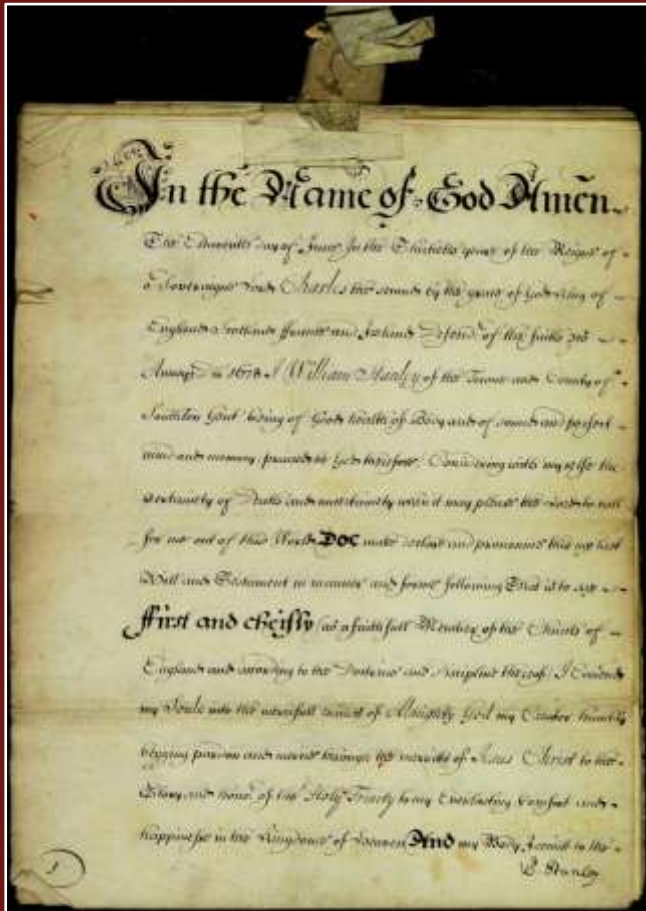 In the Name of God Amen
The day of June In the Thirtieth yeare of the Reigne of
Soveraigne Lord Charles the second by the grace of God King of
England Scotland ffrance and Ireland Defend of the faith
1678 I William Stanley of the Towne and County of
Gent being of Good health of Body and of sound and perfect
mind and memory be God therefore Considering with my selfe the
of Death and when it may please the Lord to call
for me out of this World DOE make and pronounce this my last
Will and Testament in manner and forme following That is to say
ffirst and cheifly as a faithfull Member of the Church of
England and according to the Doctrine and discipline I
my Soule into the mercifull of Almighty God my Creator humbly
begging pardon and through the merritts of Jesus Christ to the
Glory and of the Holy Trinity to my Everlasting Comfort and
happinesse in the Kingdome of Heaven And my Body I to the
Stanley
1